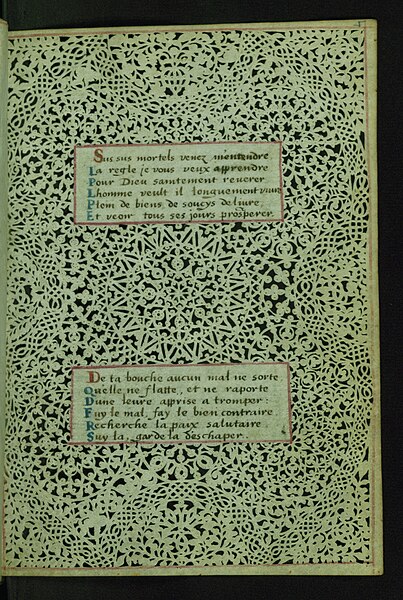 Sus sus mortels venez m'entendre
La regle je vous veux apprendre
Pour Dieu saintement reverer
Lhomme veult il longuement vivre
Plem de biens, de soucys delivre
Et veoir tous ses jours prosperer.
De ta bouche aucun mal ne sorte
Quelle ne flatte, et ne raporte
Dune leure apprise a tromper:
Fuy le mal, fay le bien contraire
Recherche la paix salutaire
Suy la, garde la deschaper.